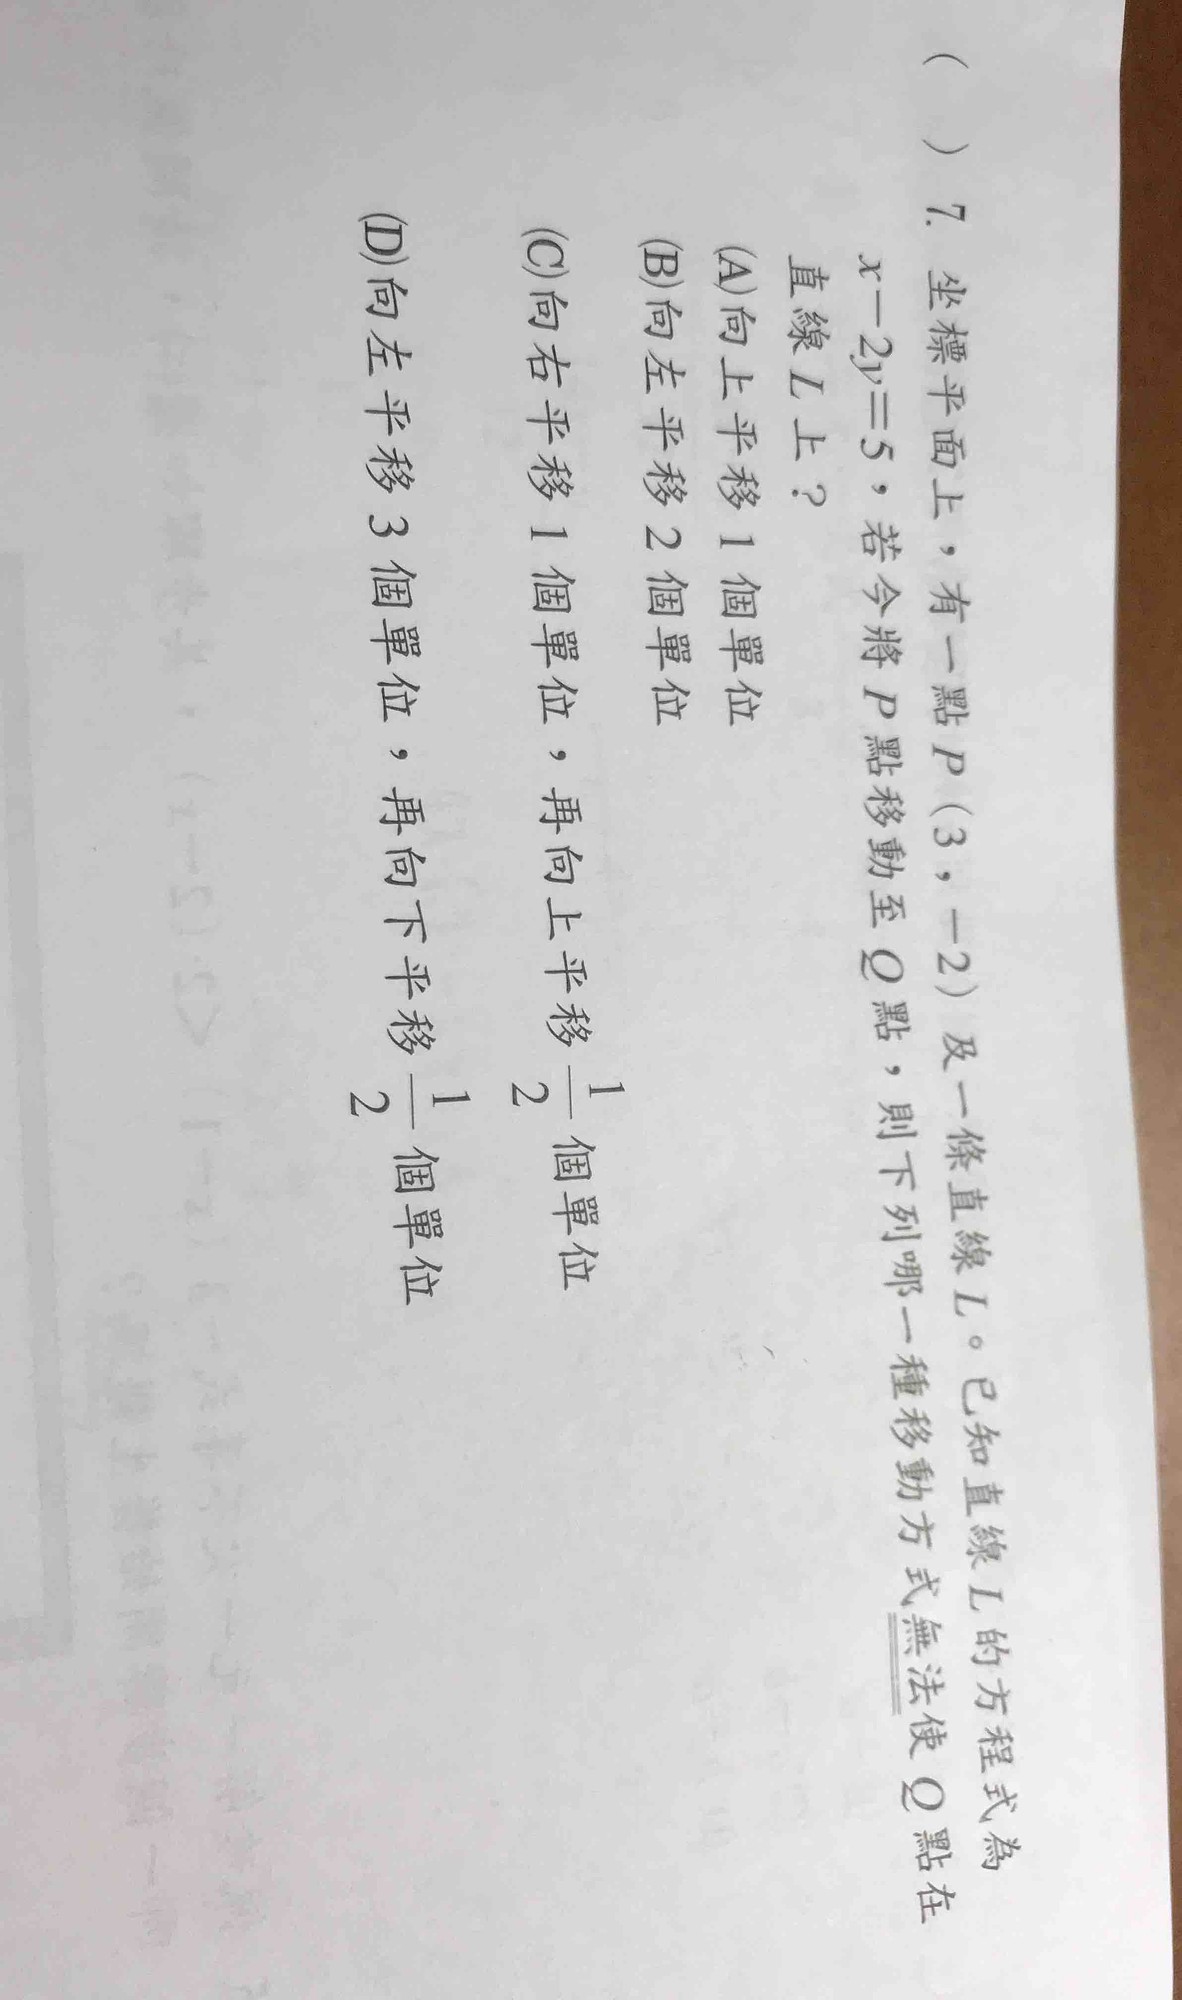 （　）7. 坐標平面上，有一點P（3，−2）及一條直線L。已知直線L的方程式為
x−2y＝5，若今將P點移動至Q點，則下列哪一種移動方式無法使Q點在
直線L上？
(A)向上平移1個單位
(B)向左平移2個單位
(C)向右平移1個單位，再向上平移1/2個單位
(D)向左平移3個單位，再向下平移1/2個單位